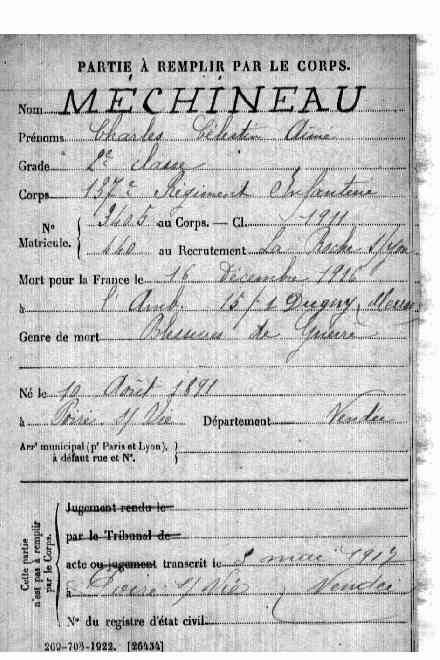 PARTIE À REMPLIR PAR LE CORPS.
Nom MÉCHINEAU
Prénoms Charles Célestin Aimé
Grade 2e classe
Corps 137e Régiment Infanterie
No Matricule. 3405 au Corps. — Cl. 1911
460 au Recrutement La Roche s/Yon
Mort pour la France le 16 Décembre 1916
à l'Amb. 15/1 Dugny, Meuse
Genre de mort Blessures de Guerre
Né le 10 Août 1891
à Poiré s/ Vie Département Vendée
Arrt municipal (pr Paris et Lyon), à défaut rue et No.
Cette partie n'est pas à remplir par le Corps.
Jugement rendu le
par le Tribunal de
acte ou jugement transcrit le 8 mai 1917
à Poiré s/ Vie Vendée
No du registre d'état civil
269-708-1922. [26434]